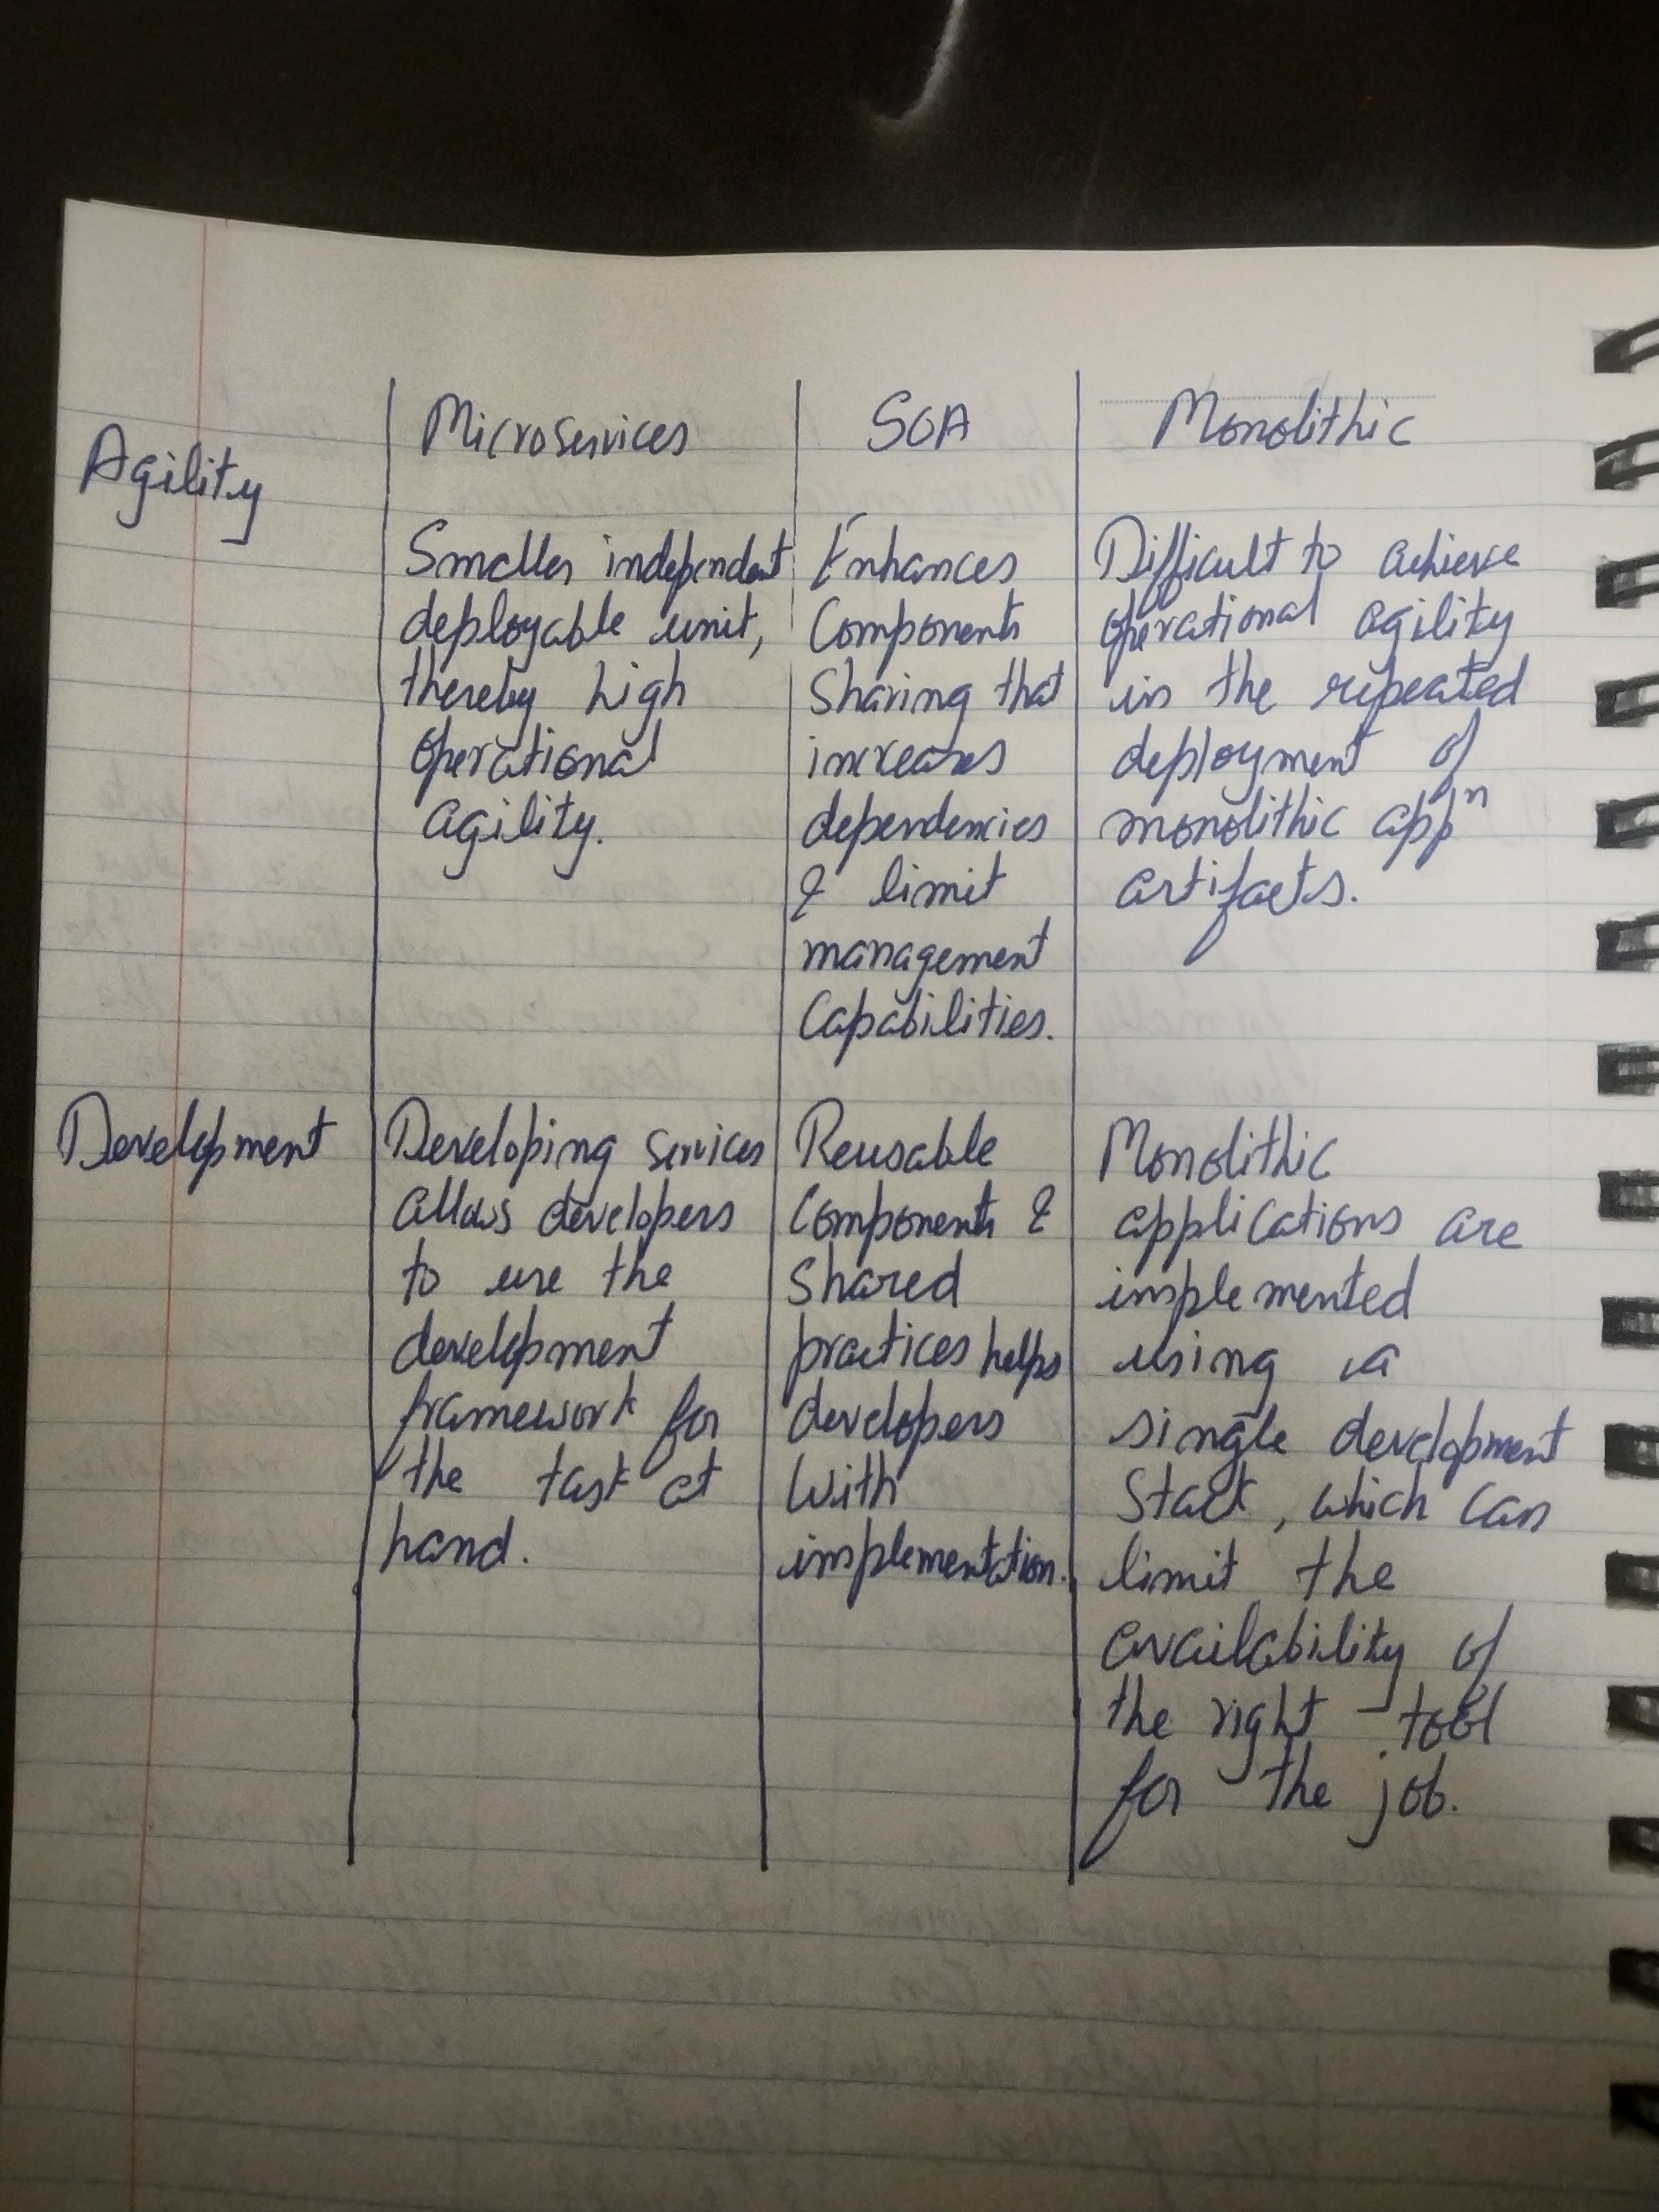 Microservices
SOA
Monolithic
Agility
Smaller independent
deployable unit,
thereby high
operational
agility.
Enhances
Components
Sharing that
increases
dependencies
& limit
management
Capabilities.
Difficult to achieve
operational agility
in the repeated
deployment of
monolithic appⁿ
artifacts.
Development
Developing services
allows developers
to use the
development
framework for
the task at
hand.
Reusable
Components &
Shared
practices helps
developers
with
implementation.
Monolithic
applications are
implemented
using a
single development
Stack, which can
limit the
availability of
the right tool
for the job.